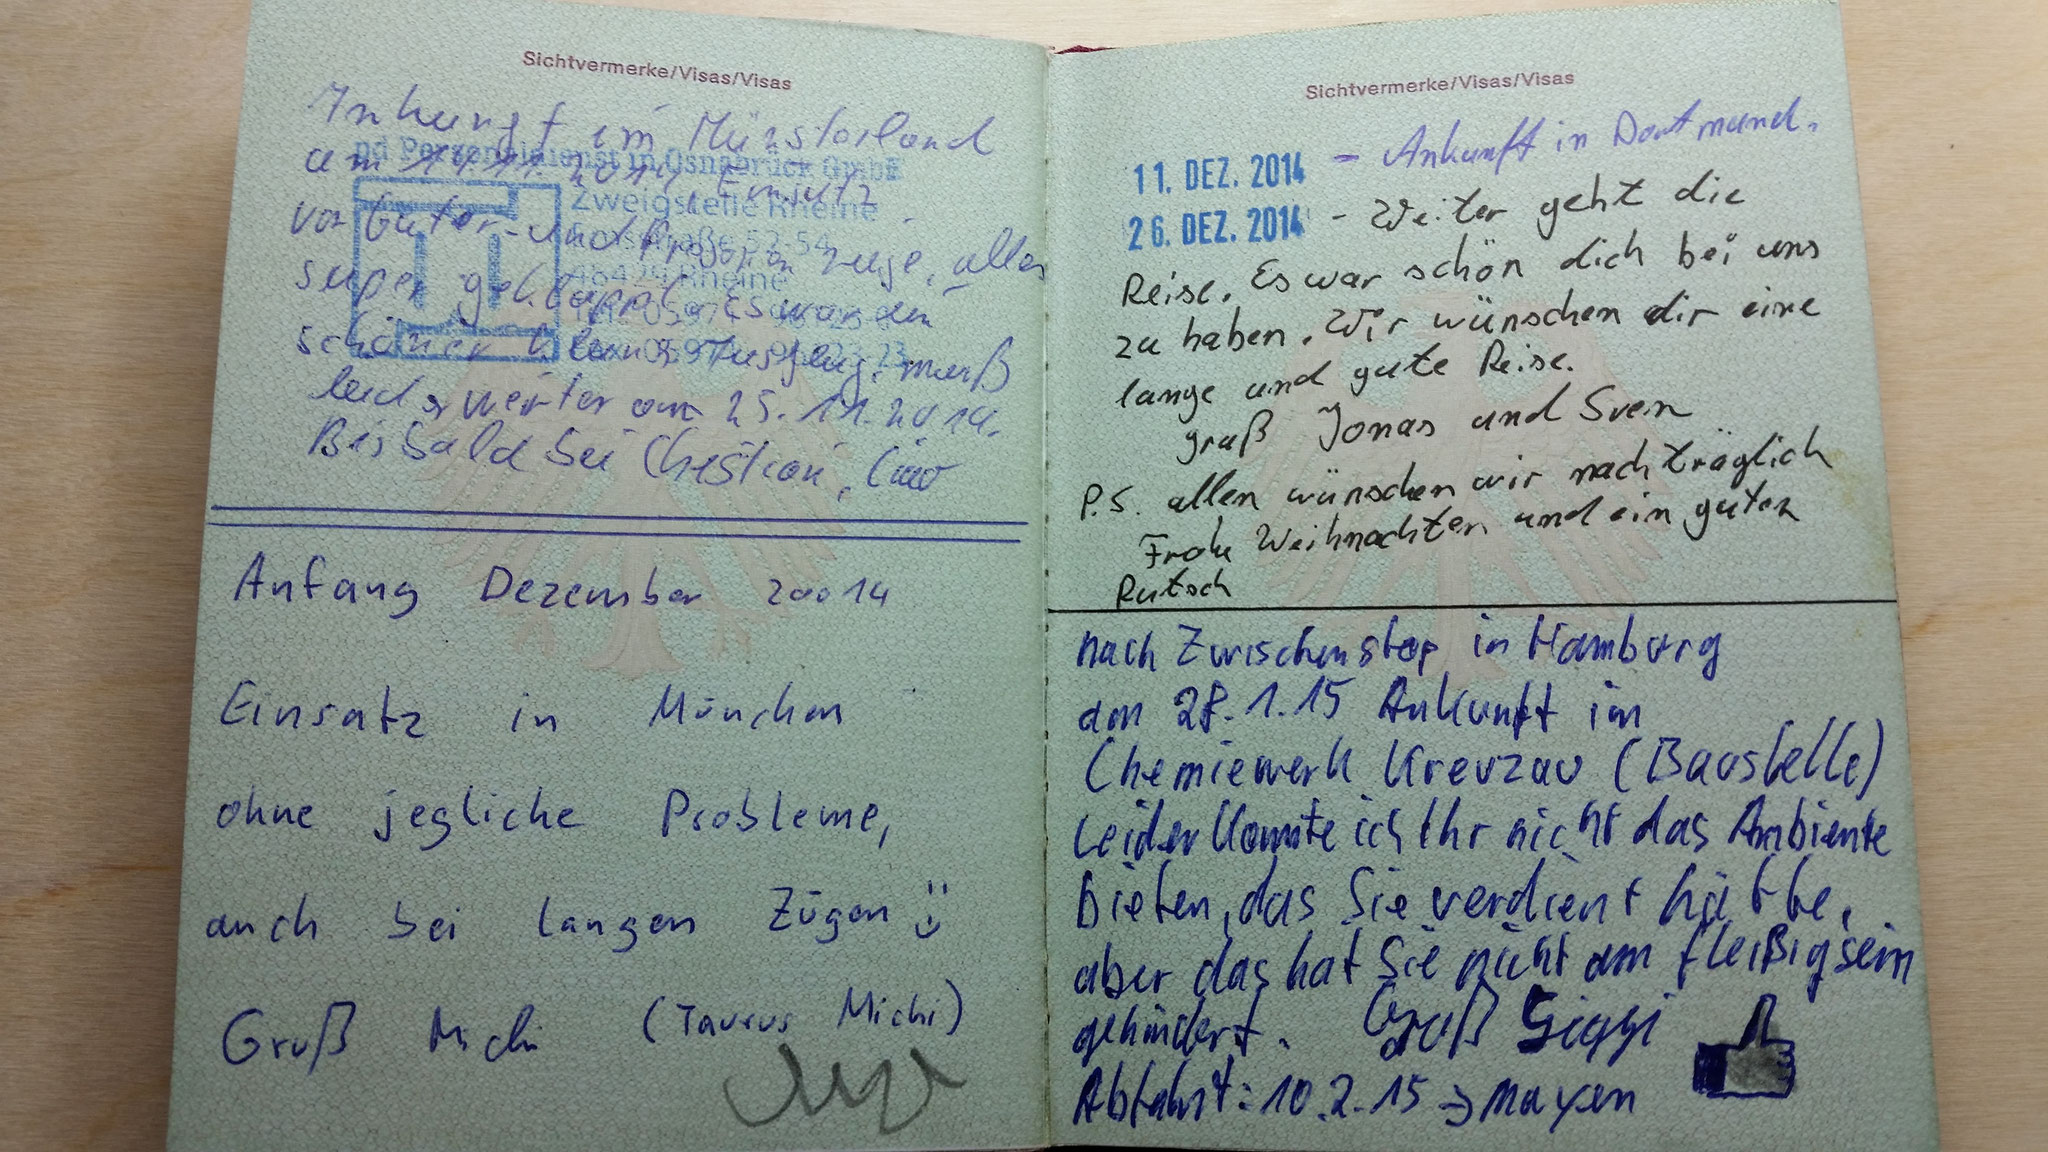 Sichtvermerke/Visas/Visas
Ankunft im Münsterland
am
nd Personaldienst in Osnabrück GmbH
Einsatz
Zweigstelle Rheine
vor Güter- und Personenzüge, alles
52-54
48429 Rheine
super geklappt. Es war ein
schöner Ausflug, muß
leider weiter am 25.11.2014.
Bis bald bei Christian, Ciao
Anfang Dezember 20014
Einsatz in München
ohne jegliche Probleme,
auch bei langen Zügen
Gruß Michi (Taurus Michi)
Sichtvermerke/Visas/Visas
11. DEZ. 2014 - Ankunft in Dortmund.
26. DEZ. 2014 - Weiter geht die
Reise. Es war schön dich bei uns
zu haben. Wir wünschen dir eine
lange und gute Reise.
gruß Jonas und Sven
P.S. allen wünschen wir nachträglich
Frohe Weihnachten und ein guten
Rutsch
nach Zwischenstop in Hamburg
am 28.1.15 Ankunft im
Chemiewerk Kreuzau (Baustelle)
Leider Konnte ich Ihr nicht das Ambiente
Bieten, das Sie verdient hätte,
aber das hat Sie nicht am fleißigsein
gehindert. Gruß Siggi
Abfahrt: 10.2.15 → Mayen